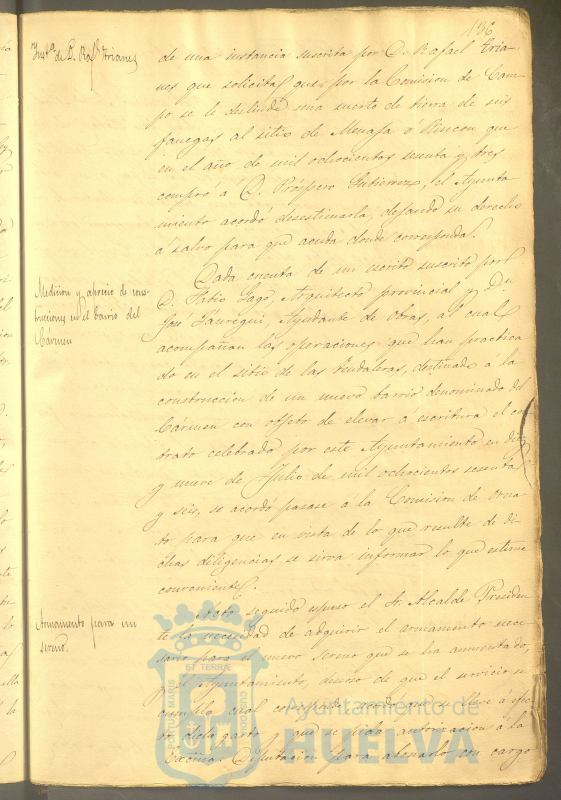 136
Inst.ª de D. Raf.l Arianes
de una instancia suscrita por D. Rafael Aria-
nes que solicita que por la Comision de Cam-
po se le deslinde una suerte de tierra de seis
fanegas al sitio de Menaja ó Rincon, que
en el año de mil ochocientos sesenta y tres
compró á D. Próspero Gutierrez, el Ayunta-
miento acordó desestimarla, dejando su derecho
á salvo para que acuda donde corresponda.
Medicion y aprecio de cons-
trucciones en el barrio del
Cármen
Dada cuenta de un escrito suscrito por
D. Fabio Gago, Arquitecto provincial y Dn.
José Jáuregui, Ayudante de obras, al cual
acompañan las operaciones que han practica
do en el sitio de las Vendaleras, destinado á la
construccion de un nuevo barrio denominado del
Cármen con objeto de elevar á escritura el con
trato celebrado por este Ayuntamiento en diez
y nueve de Julio de mil ochocientos sesenta
y seis, se acordó pasase á la Comision de Orna
to para que en vista de lo que resulte de di-
chas diligencias, se sirva informar lo que estime
conveniente.
Armamento para un
sereno.
Acto seguido espuso el Sr. Alcalde Presiden
te la necesidad de adquirir el armamento nece-
sario para el nuevo sereno que se ha aumentado,
y el Ayuntamiento, deseoso de que el servicio se
cumpla cual corresponde acordó que se lleve á efec
to dicho gasto y que se pida autorizacion á la
Excma. Diputacion para abonarlo con cargo
PORTUS MARIS
ET TERRÆ
CUSTODIA
Ayuntamiento de
HUELVA